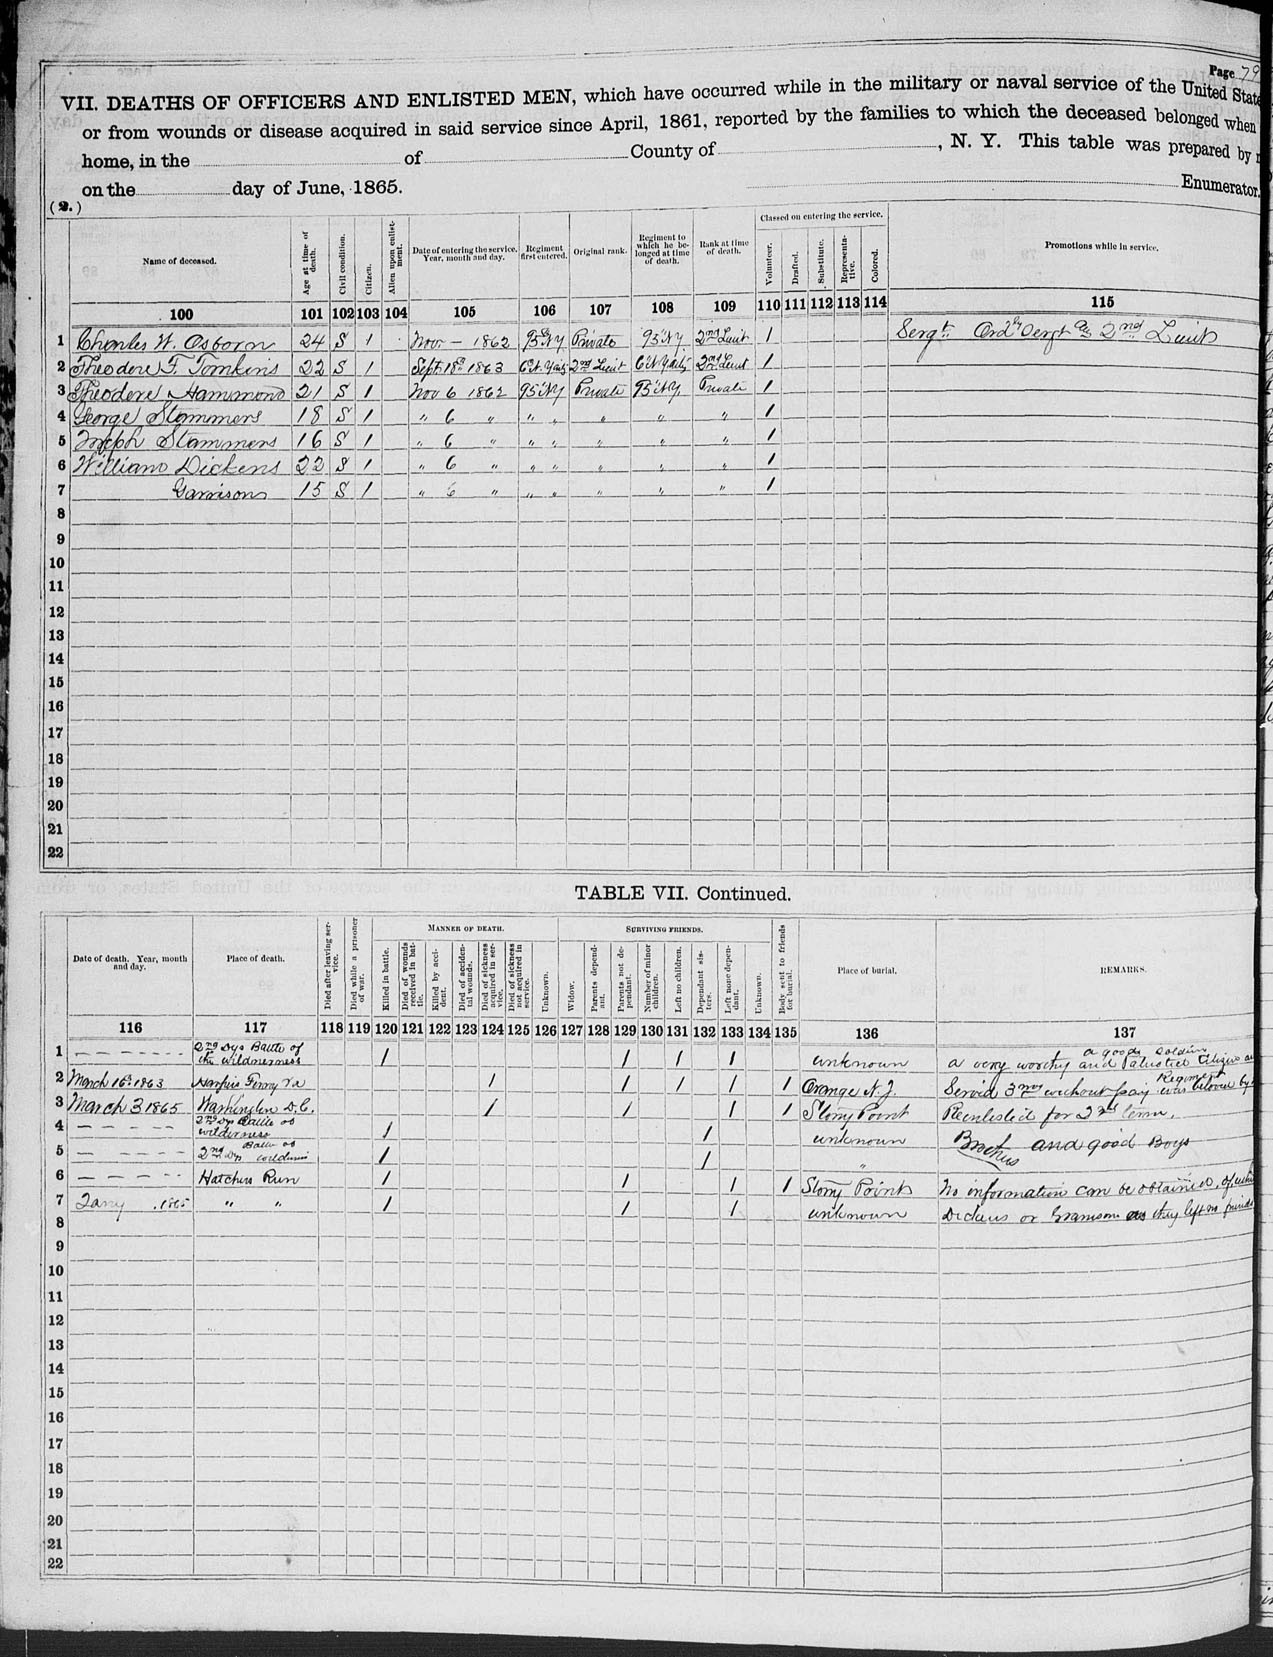 Page 79
VII. DEATHS OF OFFICERS AND ENLISTED MEN, which have occurred while in the military or naval service of the United State
or from wounds or disease acquired in said service since April, 1861, reported by the families to which the deceased belonged when
home, in the of County of , N. Y. This table was prepared by
on the day of June, 1865. Enumerator.
(2.)
Name of deceased. Age at time of death. Civil condition. Citizen. Alien upon enlistment. Date of entering the service. Year, month and day. Regiment first entered. Original rank. Regiment to which he belonged at time of death. Rank at time of death. Classed on entering the service. Volunteer. Drafted. Substitute. Representative. Colored. Promotions while in service.
100 101 102 103 104 105 106 107 108 109 110 111 112 113 114 115
1 Charles W. Osborn 24 S 1 Nov — 1862 95 NY Private 95 NY 2nd Lieut 1 Sergt. Ord Sergt 2nd Lieut
2 Theodore F. Tomkins 22 S 1 Sept 18 1863 2nd Lieut 2nd Lieut 1
3 Theodore Hammond 21 S 1 Nov 6 1862 95 NY Private 95 NY Private 1
4 George Stammers 18 S 1 " 6 " " " " " " 1
5 Joseph Stammers 16 S 1 " 6 " " " " " " 1
6 William Dickens 22 S 1 " 6 " " " " " " 1
7 Garrison 15 S 1 " 6 " " " " " " 1
8
9
10
11
12
13
14
15
16
17
18
19
20
21
22
TABLE VII. Continued.
Date of death. Year, month and day. Place of death. Died after leaving service. Died while a prisoner of war. MANNER OF DEATH. Killed in battle. Died of wounds received in battle. Killed by accident. Died of accidental wounds. Died of sickness acquired in service. Died of sickness not acquired in service. Unknown. SURVIVING FRIENDS. Widow. Parents dependant. Parents not dependant. Number of minor children. Left no children. Dependant sisters. Left none dependant. Unknown. Body sent to friends for burial. Place of burial. REMARKS.
116 117 118 119 120 121 122 123 124 125 126 127 128 129 130 131 132 133 134 135 136 137
1 — — — — — — 2nd Dys Battle of the wilderness 1 1 1 1 unknown a very worthy and a good Soldier
2 March 16 1863 Harpers Ferry Va 1 1 1 1 1 Orange N. J. Served 3 mos without pay was beloved by Regiment
3 March 3 1865 Washington D.C. 1 1 1 1 Stony Point Reenlisted for 2nd term.
4 — — — — — 2nd Dys Battle of wilderness 1 1 unknown Brothers and good Boys
5 — — — — — 2nd Dys Battle of 1 1 "
6 — — — — Hatchers Run 1 1 1 1 Stony Point No information can be obtained, of
7 Jany . 1865 " " 1 1 1 unknown Dickens or Garrison as they left no friends
8
9
10
11
12
13
14
15
16
17
18
19
20
21
22